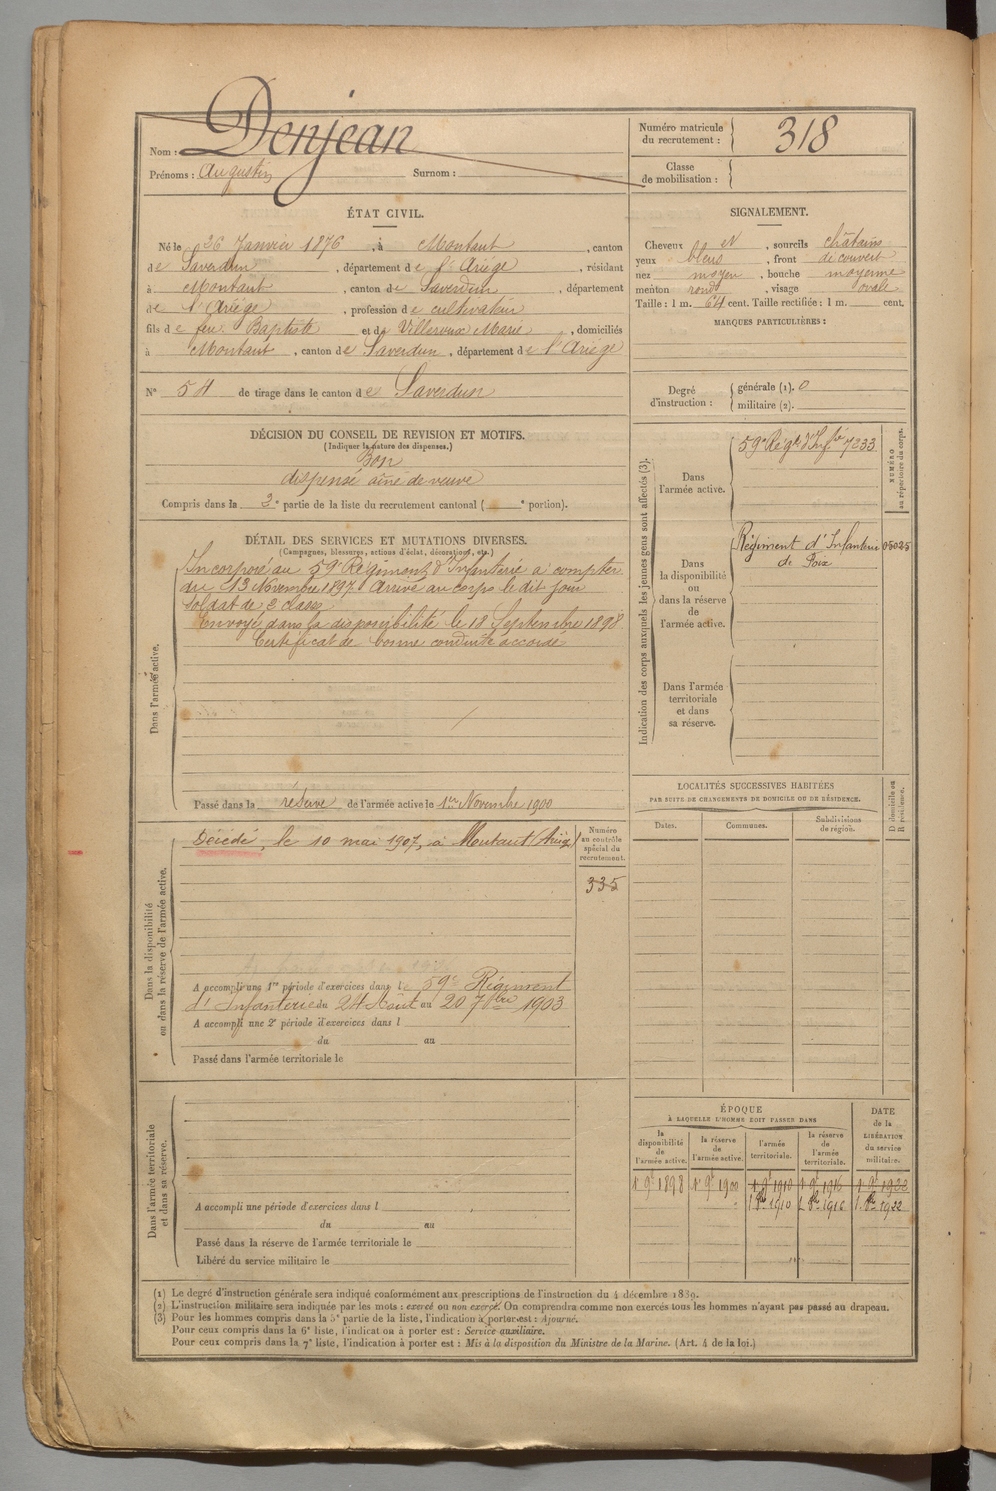 Nom : Denjean
Prénoms : Augustin Surnom :
Numéro matricule du recrutement : 318
Classe de mobilisation :
ÉTAT CIVIL.
Né le 26 Janvier 1876, à Montaut, canton
de Saverdun, département de l'Ariège, résidant
à Montaut, canton de Saverdun, département
de l'Ariège, profession de cultivateur
fils de feu Baptiste et de Villeroux Marie, domiciliés
à Montaut, canton de Saverdun, département de l'Ariège
N° 54 de tirage dans le canton de Saverdun
SIGNALEMENT.
Cheveux et, sourcils châtains
yeux bleus, front découvert
nez moyen, bouche moyenne
menton rond, visage ovale
Taille : 1 m. 64 cent. Taille rectifiée : 1 m. cent.
MARQUES PARTICULIÈRES :
Degré d'instruction : générale (1). 0
militaire (2).
DÉCISION DU CONSEIL DE REVISION ET MOTIFS.
(Indiquer la nature des dispenses.)
Bon
dispensé aîné de veuve
Compris dans la 3e partie de la liste du recrutement cantonal ( e portion).
DÉTAIL DES SERVICES ET MUTATIONS DIVERSES.
(Campagnes, blessures, actions d'éclat, décorations, etc.)
Dans l'armée active.
Incorporé au 59e Régiment d'Infanterie à compter
du 13 Novembre 1897 Arrivé au corps le dit jour
soldat de 2e classe
Envoyé dans la disponibilité le 18 Septembre 1898
Certificat de bonne conduite accordé
Passé dans la réserve de l'armée active le 1er Novembre 1900
Indication des corps auxquels les jeunes gens sont affectés (3).
NUMÉRO au répertoire du corps.
Dans l'armée active.
59e Régt d'Infie 7233
Dans la disponibilité ou dans la réserve de l'armée active.
Régiment d'Infanterie 05025
de Foix
Dans l'armée territoriale et dans sa réserve.
Dans la disponibilité ou dans la réserve de l'armée active.
Décédé, le 10 mai 1907, à Montaut (Ariège)
Numéro au contrôle spécial du recrutement.
335
A accompli une 1re période d'exercices dans le 59e Régiment
d'Infanterie du 24 Août au 20 7bre 1903
A accompli une 2e période d'exercices dans l
du au
Passé dans l'armée territoriale le
LOCALITÉS SUCCESSIVES HABITÉES
PAR SUITE DE CHANGEMENTS DE DOMICILE OU DE RÉSIDENCE.
D domicile ou R résidence.
Dates. Communes. Subdivisions de région.
Dans l'armée territoriale et dans sa réserve.
A accompli une période d'exercices dans l
du au
Passé dans la réserve de l'armée territoriale le
Libéré du service militaire le
ÉPOQUE
À LAQUELLE L'HOMME DOIT PASSER DANS
DATE de la LIBÉRATION du service militaire.
la disponibilité de l'armée active. la réserve de l'armée active. l'armée territoriale. la réserve de l'armée territoriale.
1er 9bre 1898 1er 9bre 1900 1er 9bre 1910 1er 9bre 1916 1er 9bre 1922
1910 1916 1922
(1) Le degré d'instruction générale sera indiqué conformément aux prescriptions de l'instruction du 4 décembre 1889.
(2) L'instruction militaire sera indiquée par les mots : exercé ou non exercé. On comprendra comme non exercés tous les hommes n'ayant pas passé au drapeau.
(3) Pour les hommes compris dans la 5e partie de la liste, l'indication à porter est : Ajourné.
Pour ceux compris dans la 6e liste, l'indication à porter est : Service auxiliaire.
Pour ceux compris dans la 7e liste, l'indication à porter est : Mis à la disposition du Ministre de la Marine. (Art. 4 de la loi.)